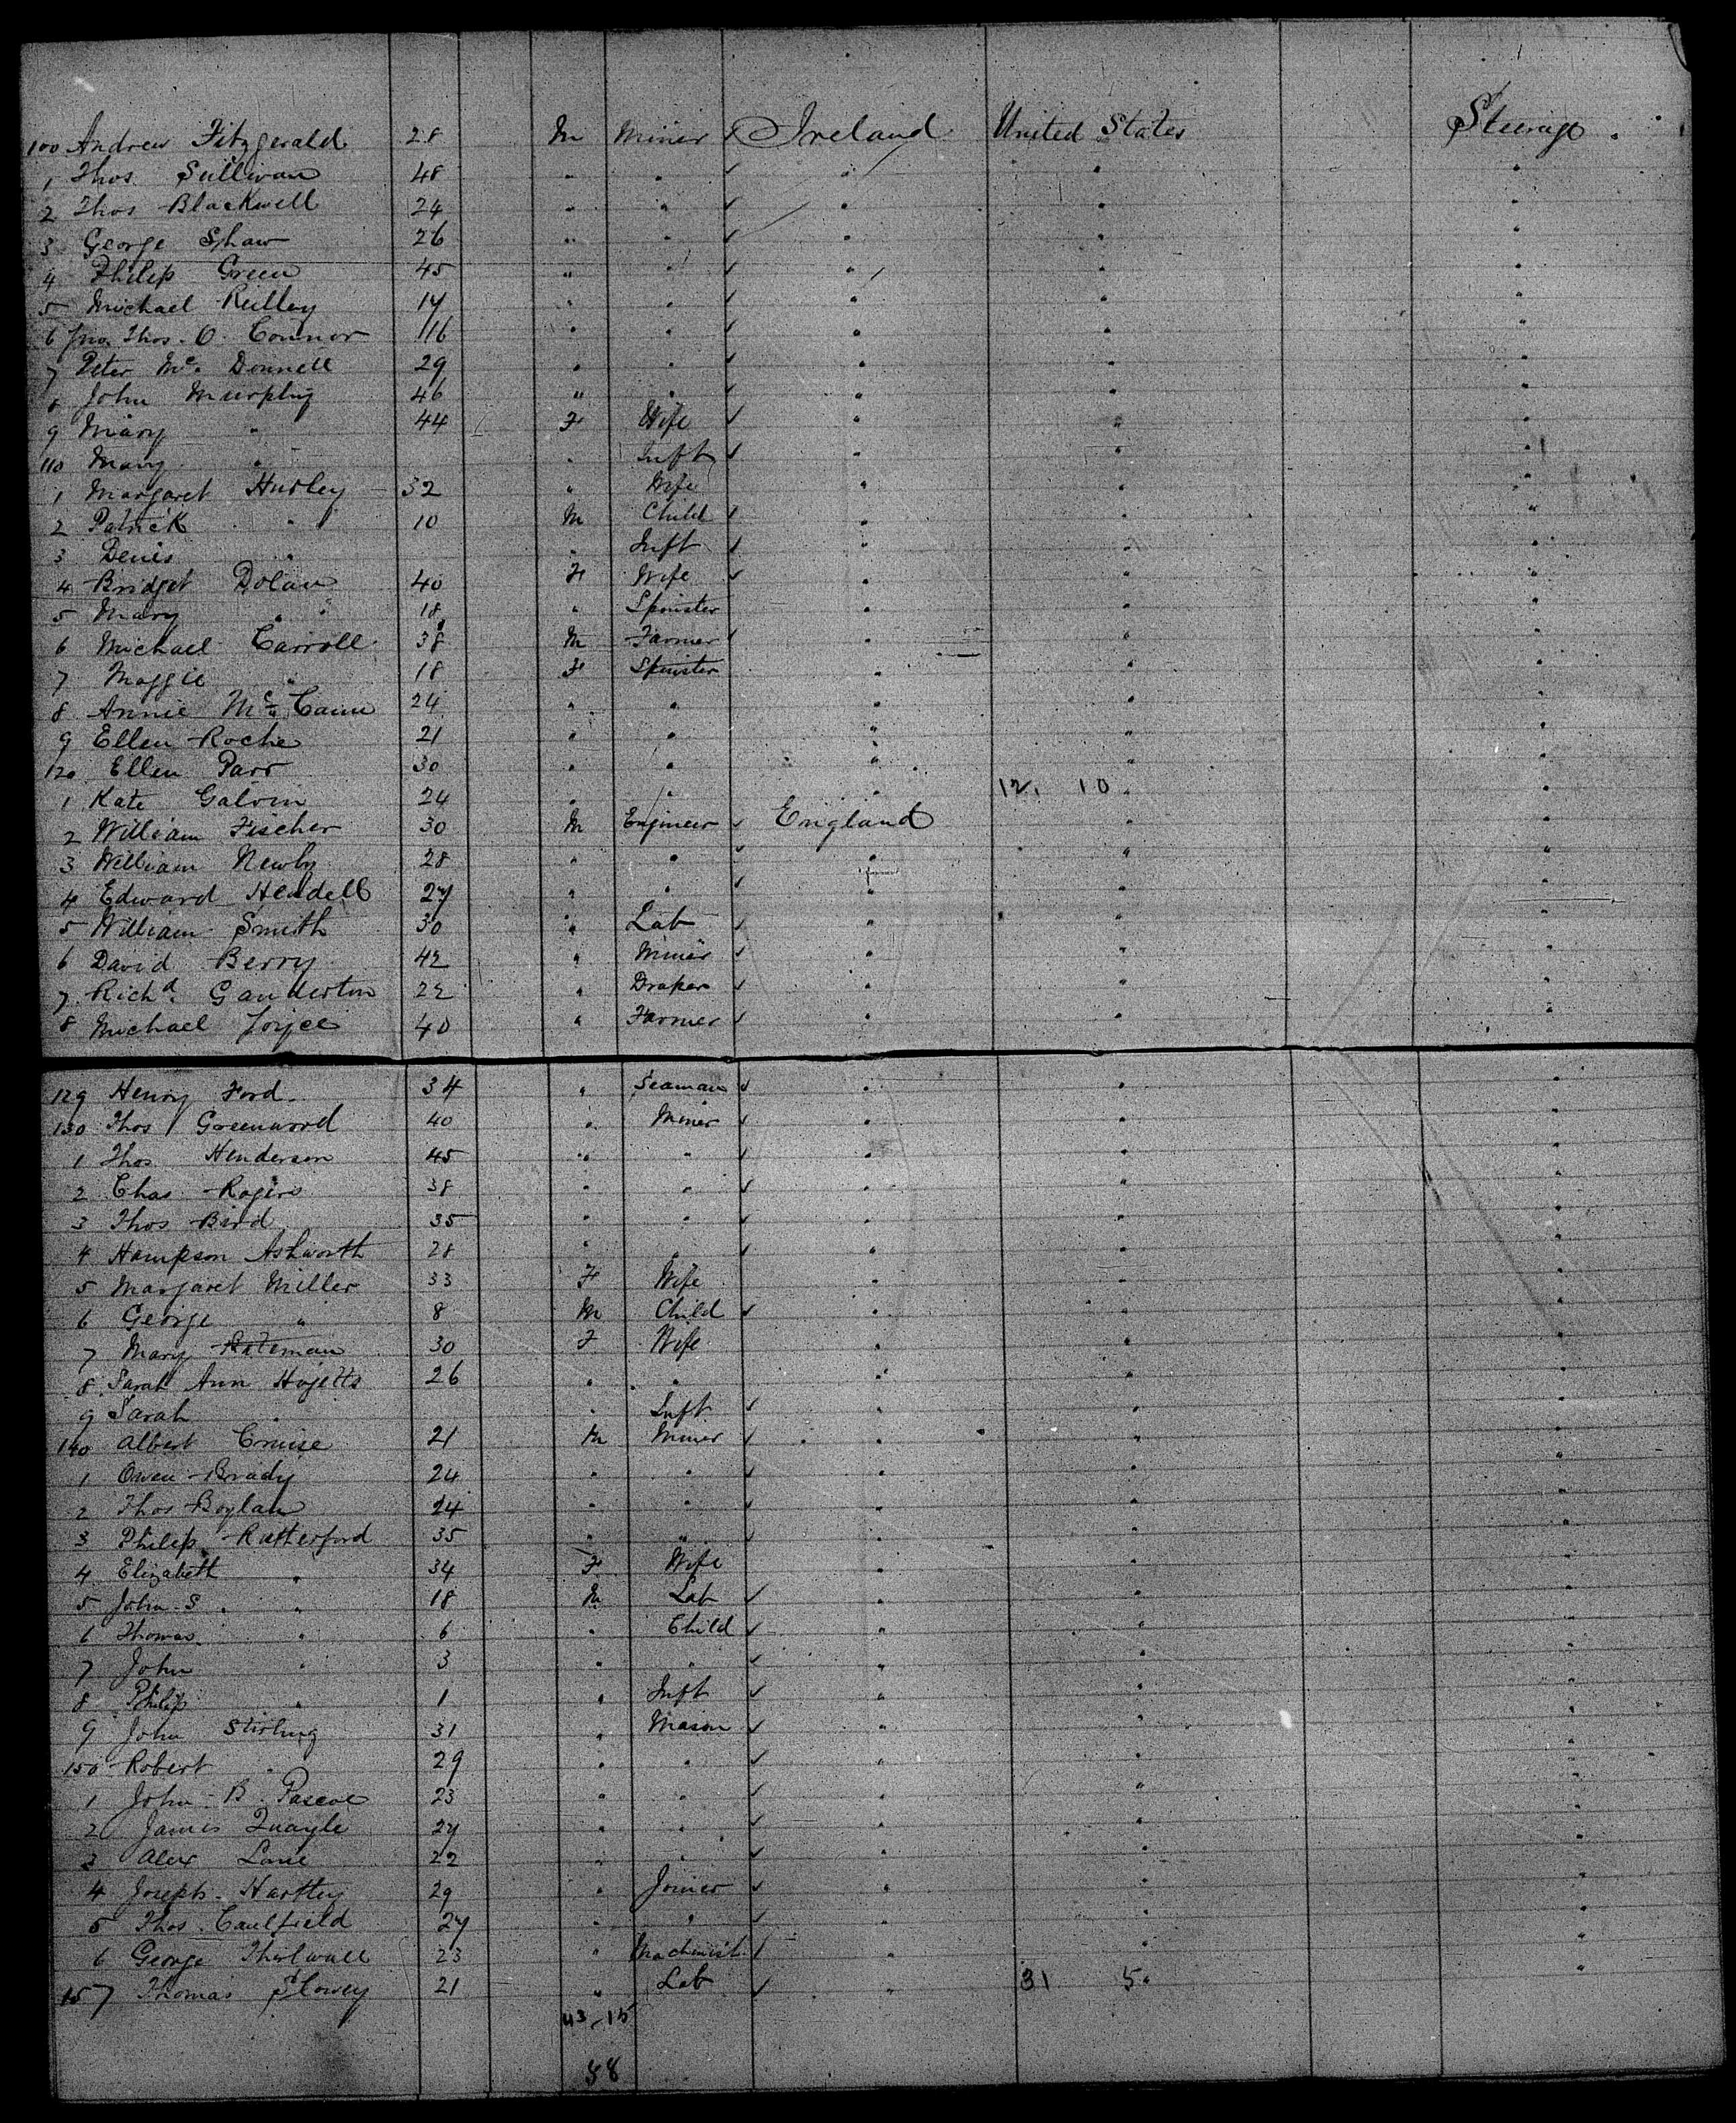 100 Andrew Fitzgerald 28 M Miner ✓ Ireland United States Steerage.
1 Thos. Sullivan 48 " " ✓ " " "
2 Thos Blackwell 24 " " ✓ " " "
3 George Shaw 26 " " ✓ " " "
4 Philip Green 45 " " ✓ " " "
5 Michael Reilley 17 " " ✓ " " "
6 Jno. Thos. O. Connor 16 " " ✓ " " "
7 Peter Mc. Donnell 29 " " ✓ " " "
8 John Murphy 46 " " ✓ " " "
9 Mary " 44 F Wife ✓ " " "
110 Mary " " Inft ✓ " " "
1 Margaret Hurley 32 " Wife " " "
2 Patrick " 10 M Child ✓ " " "
3 Denis " " Inft ✓ " " "
4 Bridget Dolan 40 F Wife ✓ " " "
5 Mary " 18 " Spinster " " "
6 Michael Carroll 38 M Farmer ✓ " " "
7 Maggie " 18 F Spinster " " "
8 Annie Mc Cann 24 " " " " "
9 Ellen Roche 21 " " " " "
120 Ellen Parr 30 " " " " "
1 Kate Galvin 24 " " " 12. 10 " "
2 William Fischer 30 M Engineer ✓ England " "
3 William Newby 28 " " ✓ " " "
4 Edward Hendell 27 " " ✓ " " "
5 William Smith 30 " Lab ✓ " " "
6 David Berry 42 " Miner ✓ " " "
7 Richd. Ganderton 22 " Draper ✓ " " "
8 Michael Joyce 40 " Farmer ✓ " " "
129 Henry Ford 34 " Seaman ✓ " " "
130 Thos Greenwood 40 " Miner ✓ " " "
1 Thos Henderson 45 " " ✓ " " "
2 Chas. Rogers 38 " " ✓ " " "
3 Thos Bird 35 " " ✓ " " "
4 Hampson Ashworth 28 " " ✓ " " "
5 Margaret Miller 33 F Wife " " "
6 George " 8 M Child ✓ " " "
7 Mary Bateman 30 F Wife " " "
8 Sarah Ann Hugetts 26 " " " " "
9 Sarah " " Inft ✓ " " "
140 Albert Cruise 21 M Miner ✓ " " "
1 Owen Brady 24 " " ✓ " " "
2 Thos Boylan 24 " " ✓ " " "
3 Philip Rutherford 35 " " ✓ " " "
4 Elizabeth " 34 F Wife " " "
5 John S. " 18 M Lab ✓ " " "
6 Thomas " 6 " Child ✓ " " "
7 John " 3 " " ✓ " " "
8 Philip " 1 " Inft ✓ " " "
9 John Stirling 31 " Mason ✓ " " "
150 Robert " 29 " " ✓ " " "
1 John B. Pascoe 23 " " ✓ " " "
2 James Quayle 27 " " ✓ " " "
3 Alex Lane 22 " " ✓ " " "
4 Joseph Hartley 29 " Joiner ✓ " " "
5 Thos. Caulfield 27 " " ✓ " " "
6 George Thirlwall 23 " Machinist ✓ " " "
157 Thomas Slowey 21 " Lab ✓ " 31 5 " "
43-15
58